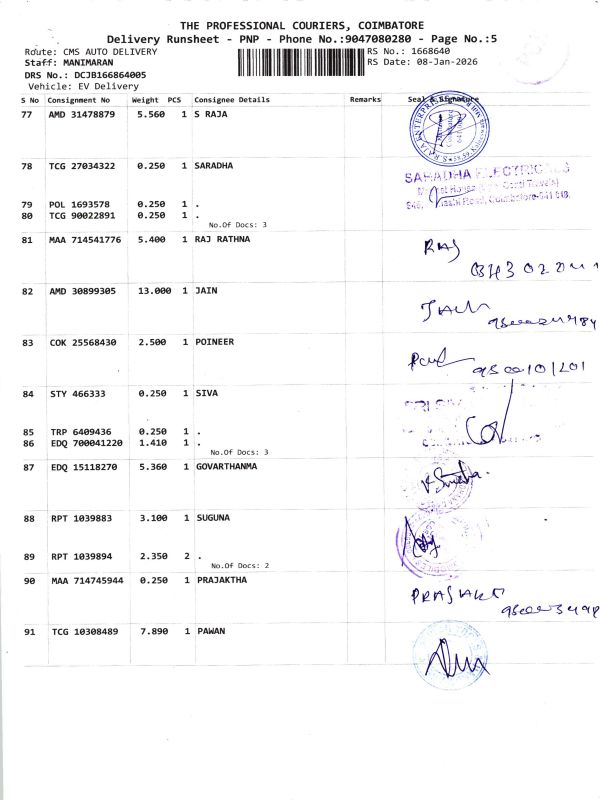 THE PROFESSIONAL COURIERS, COIMBATORE
Delivery Runsheet - PNP - Phone No.:9047080280 - Page No.:5
Route: CMS AUTO DELIVERY RS No.: 1668640
Staff: MANIMARAN RS Date: 08-Jan-2026
DRS No.: DCJB166864005
Vehicle: EV Delivery
S No Consignment No Weight PCS Consignee Details Remarks Seal & Signature
77 AMD 31478879 5.560 1 S RAJA
78 TCG 27034322 0.250 1 SARADHA
SARADHA ELECTRICALS
79 POL 1693578 0.250 1 .
80 TCG 90022891 0.250 1 .
No.Of Docs: 3
81 MAA 714541776 5.400 1 RAJ RATHNA
RAJ
82 AMD 30899305 13.000 1 JAIN
JAIN
83 COK 25568430 2.500 1 POINEER
84 STY 466333 0.250 1 SIVA
85 TRP 6409436 0.250 1 .
86 EDQ 700041220 1.410 1 .
No.Of Docs: 3
87 EDQ 15118270 5.360 1 GOVARTHANMA
88 RPT 1039883 3.100 1 SUGUNA
89 RPT 1039894 2.350 2 .
No.Of Docs: 2
90 MAA 714745944 0.250 1 PRAJAKTHA
91 TCG 10308489 7.890 1 PAWAN